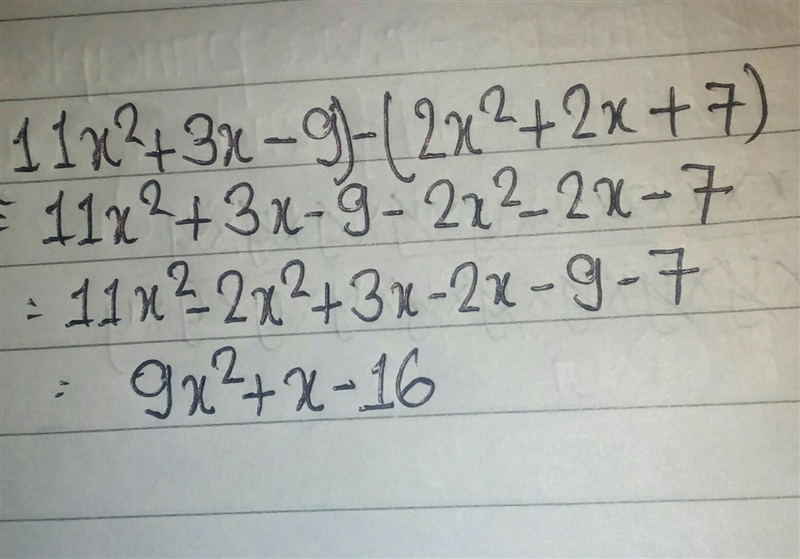 11x²+3x-9)-(2x²+2x+7)
= 11x²+3x-9-2x²-2x-7
= 11x²-2x²+3x-2x-9-7
= 9x²+x-16